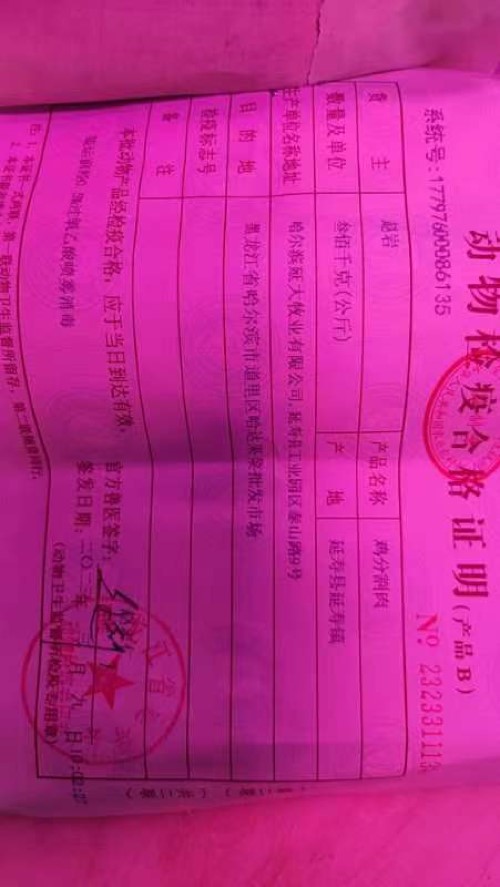 动物检疫合格证明(产品B)
系统号:17797600086135
№ 232331113
货主 赵岩 产品名称 鸡分割肉
数量及单位 叁佰千克(公斤) 产地 延寿县延寿镇
生产单位名称地址 哈尔滨延大牧业有限公司 延寿县工业园区泰山路9号
目的地 黑龙江省哈尔滨市道里区哈达果菜批发市场
检疫标志号
备注
本批动物产品经检疫合格,应于当日到达有效。
官方兽医签字:
签发日期:二〇二 年 月 九 日
(动物卫生监督所检疫专用章)
过氧乙酸喷雾消毒
注:1、本证书一式两联,第一联动物卫生监督所留存,第二联随货同行。